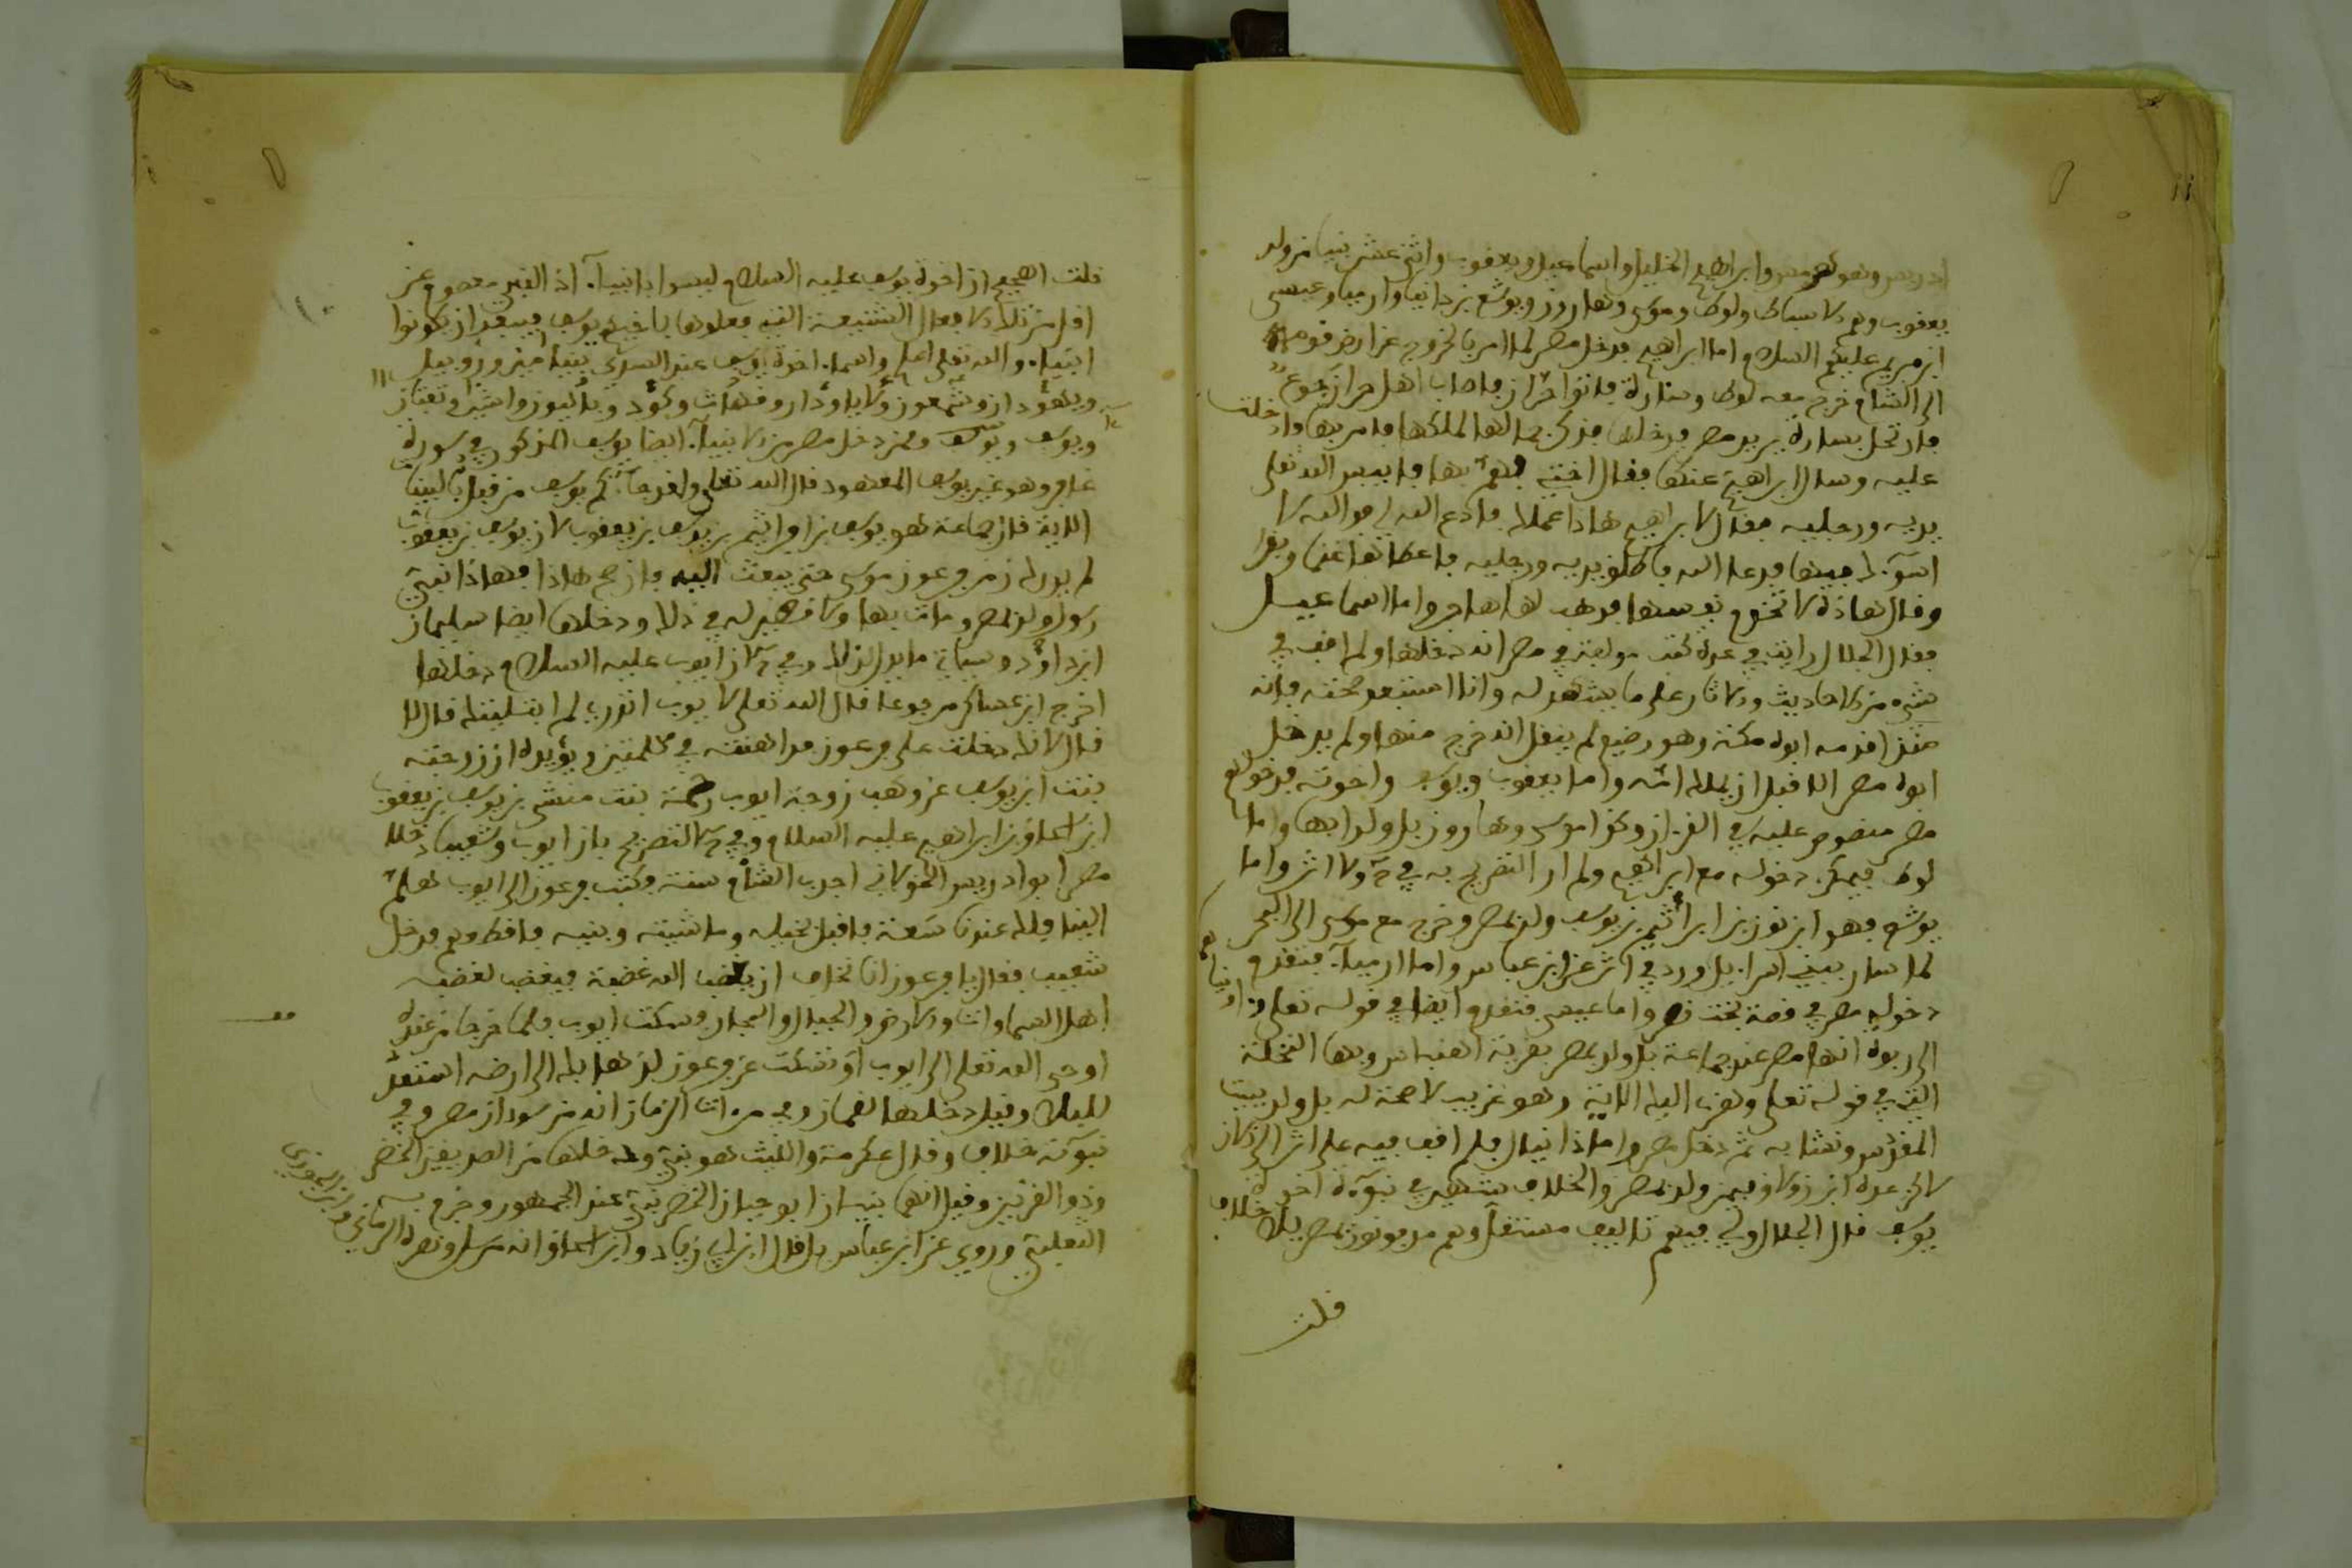 ادريس وهو هرمس وابراهيم الخليل واسماعيل ويعقوب واثنى عشر نبيا من ولد
يعقوب وهم الاسباط ولوط وموسى وهارون ويوشع بن دانيال وارميا وعيسى
ابن مريم عليهم السلام اما ابراهيم فدخل مصر لما امر بالخروج عن ارض قومه
الى الشام خرج معه لوط وسارة فاتوا حران فاصاب اهل حران جوع
فارتحل بسارة يريد مصر فدخلها فذكر جمالها لملكها فامر بها فادخلت
عليه وسال ابراهيم عنها فقال اختي فهم بها فايبس الله تعلى
يديه ورجليه فقال لابراهيم هاذا عملك فادع الله لي فوالله لا
اسوءك فيها فدعا الله فاطلق يديه ورجليه فاعطاها غنما وبقرا
وقال هاذه لا تخدم نفسها فوهب لها هاجر واما اسماعيل
فقال الجلال رايت في عدة كتب مولفة في مصر انه دخلها ولم اقف في
شيء من الاحاديث والاثار على ما يشهد له وانا استبعد صحته فانه
منذ اقدمه ابوه مكة وهو رضيع لم ينقل انه خرج منها ولم يدخل
ابوه مصر الا قبل ان يملك امه واما يعقوب ويوسف واخوته فدخولهم
مصر منصوص عليه في القرءان وكذا موسى وهارون بل ولدا بها واما
لوط فيمكن دخوله مع ابراهيم ولم ار التصريح به في ولا اثر واما
يوشع فهو ابن نون بن ابراثيم بن يوسف ولد بمصر وخرج مع موسى الى البحر
لما سار ببني اسراءيل ورد في اثر عن ابن عباس واما ارمياء فتقدم
دخوله مصر في قصة بخت نصر واما عيسى فتقدم ايضا في قوله تعلى واويناهما
الى ربوة انها مصر عند جماعة بل ولد بمصر بقرية اهناس وبها النخلة
التي في قوله تعلى وهزي اليك الاية وهو غريب لا صحة له بل ولد ببيت
المقدس ونشا به ثم دخل مصر واما دانيال فلم اقف فيه على اثر الى الان
لاكن عده ابن زولاق فيمن ولد بمصر والخلاف شهير في نبوءة اخوة
يوسف قال الجلال ولي فيهم تاليف مستقل وهم مدفونون بمصر بلا خلاف
قلت
قلت الصحيح ان اخوة يوسف عليه السلام ليسوا بانبياء اذ النبي معصوم عن
اقل من تلك الافعال الشنيعة التي فعلوها باخيهم يوسف فيبعد ان يكونوا
انبياء والله تعلى اعلم واسماء اخوة يوسف عند السدي بنيامين وروبيل
ويهودا وشمعون ولاوي ودان وقهات وكود وياليون
ويوسف وممن دخل مصر من الانبياء ايضا يوسف المذكور في سورة
غافر وهو غير يوسف المعهود قال الله تعلى ولقد جاءكم يوسف من قبل بالبينات
الاية قال جماعة هو يوسف بن افراثيم بن يوسف بن يعقوب لان يوسف بن يعقوب
لم يدرك زمن فرعون موسى حتى يبعث اليه فان صح هاذا فهاذا نبي
رسول ولد بمصر ومات بها ولا نظير له في ذلك ودخلها ايضا سليمان
ابن داوود وسياتي ما يدل لذلك وفي ان ايوب عليه السلام دخلها
اخرج ابن عساكر مرفوعا قال الله تعلى لايوب اتدري لم ابتليتك قال لا
قال لانك دخلت على فرعون فداهنته في كلمتين ويؤيده ان زوجته
بنت ابن يوسف عن وهب زوجة ايوب رحمة بنت منشى بن يوسف بن يعقوب
ابن اسحاق بن ابراهيم عليه السلام وفي التصريح بان ايوب وشعيبا دخلا
مصر ابو ادريس الخولاني اجدب الشام سنة فكتب فرعون الى ايوب هلم
الينا فلك عندنا سعة فاقبل بخيله وماشيته وبنيه فاقطعهم فدخل
شعيب فقال يا فرعون اما تخاف ان يغضب الله غضبة فيغضب لغضبه
اهل السماوات والارض والجبال والبحار وسكت ايوب فلما خرجا من عنده
اوحى الله تعلى الى ايوب او سكت عن فرعون لذهابك الى ارضه استعد
للبلاء وقيل دخلها لقمان وفي مرءات الزمان انه من سودان مصر وفي
نبوءته خلاف وقال عكرمة والليث هو نبي ودخلها من الصديقين الخضر
وذو القرنين وقيل انهما نبيان ابو حيان الخضر نبي عند الجمهور وجزم به
الثعلبي وروي عن ابن عباس بل قال ابن ابي زياد وابن اسحاق انه مرسل ونصره الرماني وابن الجوزي